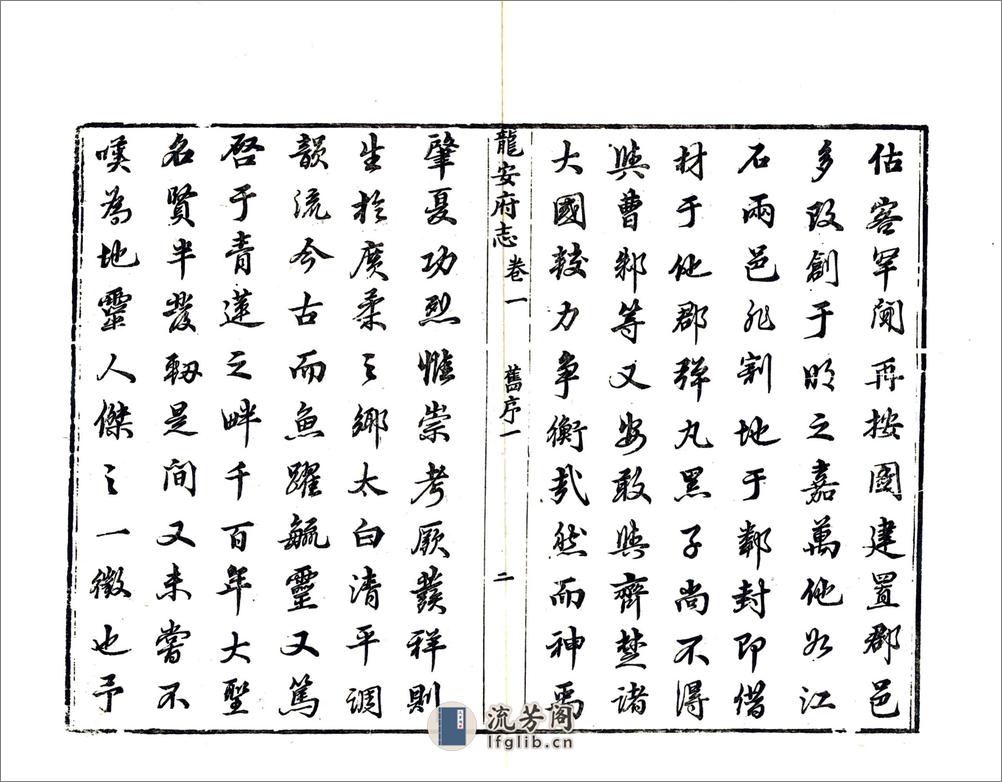 估客罕闻再按國建置郡邑
多改創于明之嘉萬他如江
石兩邑非割地于鄰封即借
材于他郡弹丸黑子尚不得
與曹鄶等又安敢與齊楚諸
大國較力争衡哉然而神禹
龍安府志 卷一 舊序一 二
肇夏功烈惟崇考厥發祥則
生於廣柔之鄉太白清平調
韻流今古而魚躍毓靈又篤
啓于青蓮之畔千百年大聖
名賢半發軔是間又未嘗不
嘆為地靈人傑之一徵也予
流芳阁
lfglib.cn